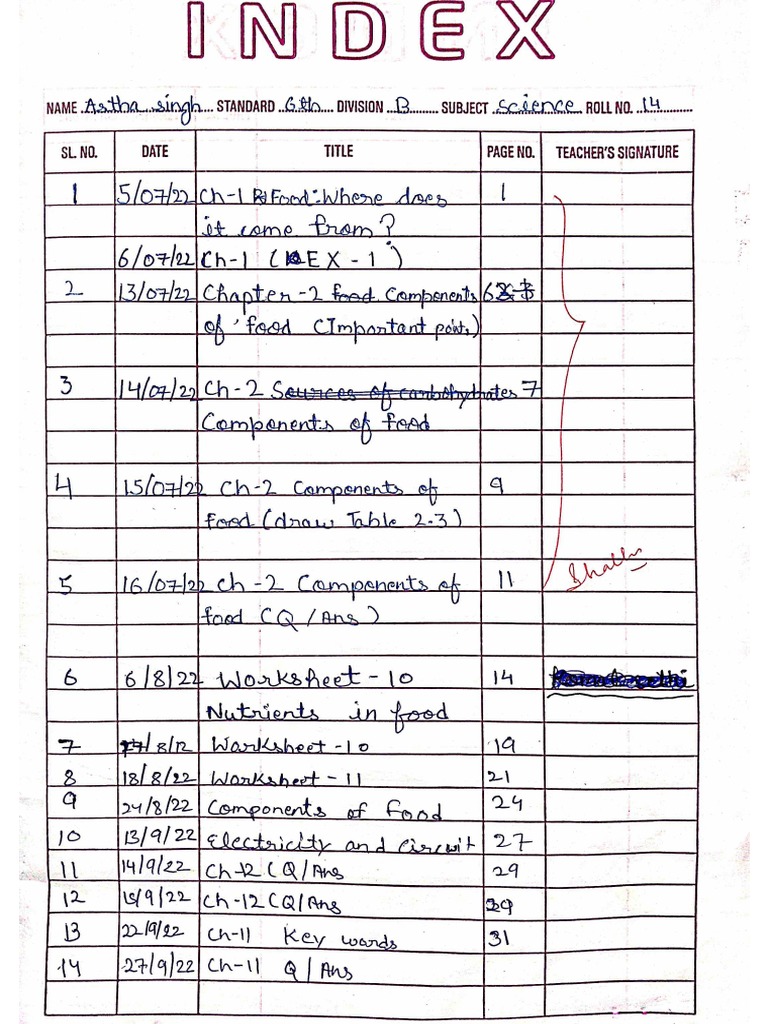 INDEX
NAME Astha singh STANDARD 6th DIVISION B SUBJECT Science ROLL NO. 14
SL. NO. DATE TITLE PAGE NO. TEACHER'S SIGNATURE
1 5/07/22 Ch-1 Food: Where does 1
it come from?
6/07/22 Ch-1 ( EX-1 )
2 13/07/22 Chapter-2 food Components 6
of food (Important points)
3 14/07/22 Ch-2 Sources of carbohydrates 7
Components of food
4 15/07/22 Ch-2 Components of 9
food (draw Table 2.3)
5 16/07/22 Ch-2 Components of 11
food (Q/Ans)
6 6/8/22 Worksheet-10 14
Nutrients in food
7 Warksheet-10 19
8 18/8/22 Worksheet-11 21
9 24/8/22 Components of Food 24
10 13/9/22 Electricity and Circuit 27
11 14/9/22 Ch-12 (Q/Ans 29
12 15/9/22 Ch-12 (Q/Ans 29
13 22/9/22 Ch-11 Key wards 31
14 27/9/22 Ch-11 Q/Ans